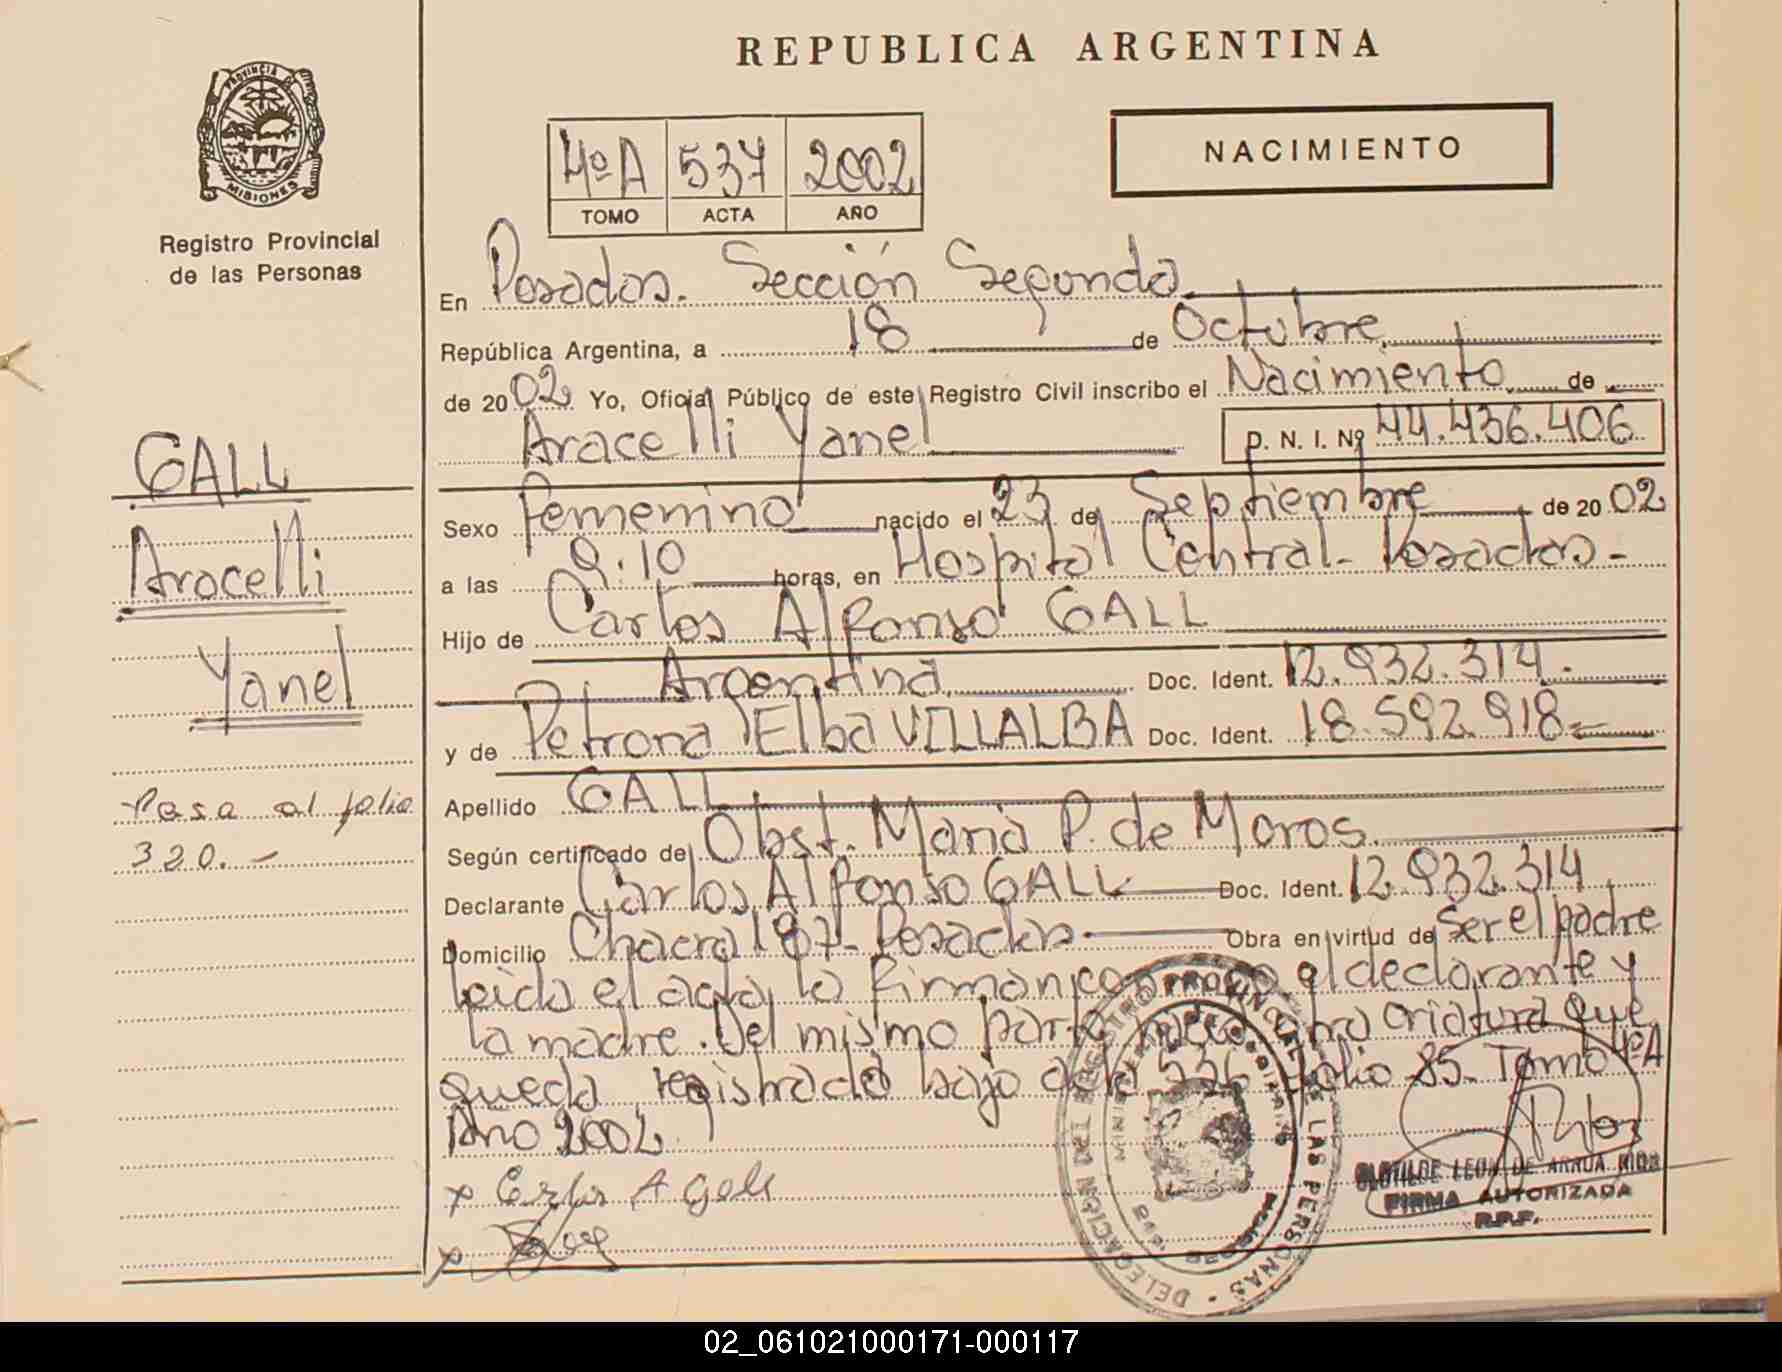 REPUBLICA ARGENTINA
PROVINCIA DE MISIONES
Registro Provincial
de las Personas
4ºA 537 2002
TOMO ACTA AÑO
NACIMIENTO
En Posadas. Sección Segunda
República Argentina, a 18 de Octubre
de 2002 Yo, Oficial Público de este Registro Civil inscribo el Nacimiento de
Aracelli Yanel D. N. I. Nº 44.436.406
GALL
Aracelli
Yanel
Sexo Femenino nacido el 23 de Septiembre de 2002
a las 9.10 horas, en Hospital Central - Posadas -
Hijo de Carlos Alfonso GALL
Argentina Doc. Ident. 12.932.314.
y de Petrona Elba VILLALBA Doc. Ident. 18.592.918=
Pasa al folio
320.-
Apellido GALL
Según certificado de Obst. Maria P. de Moros.
Declarante Carlos Alfonso GALL Doc. Ident. 12.932.314
Domicilio Chacra 187 - Posadas - Obra en virtud de ser el padre
leida el acta, la firman conmigo el declarante y
la madre. Del mismo parto nació otra criatura que
queda registrada bajo acta 536 folio 85 - Tomo 4ºA
Año 2002
x Carlos A Gall
x
REGISTRO PROVINCIAL DE LAS PERSONAS - DELEGACION
CLOTILDE LEON DE ARRUA RIOS
FIRMA AUTORIZADA
R.P.P.
02_061021000171-000117